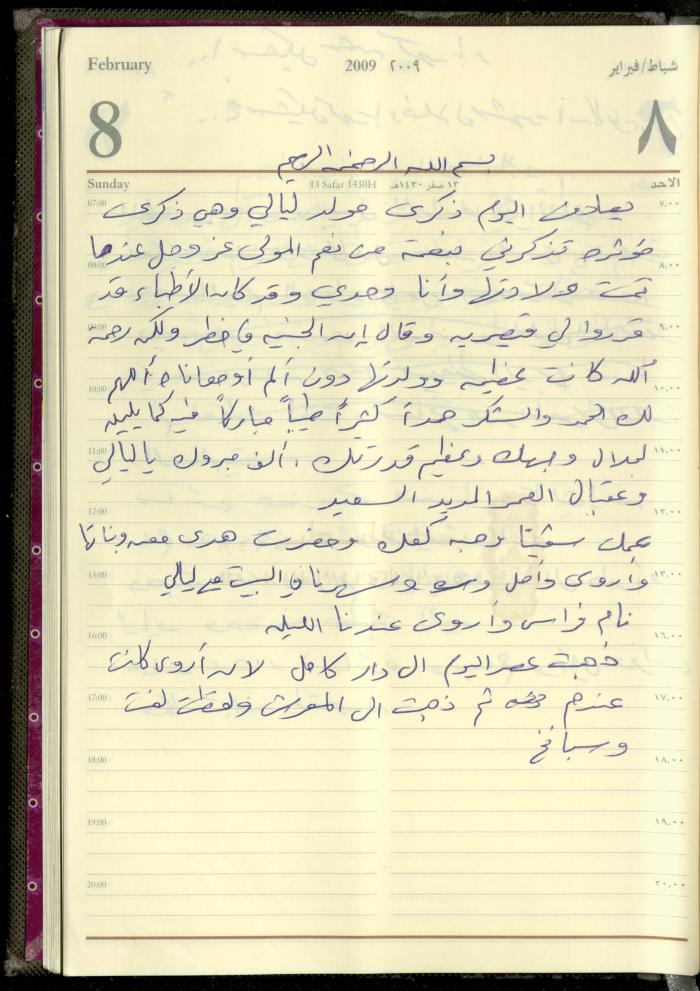 February 2009 ٢٠٠٩ شباط/فبراير
8 ٨
بسم الله الرحمن الرحيم
Sunday 13 Safar 1430H ١٣ صفر ١٤٣٠هـ الاحد
07:00 يصادف اليوم ذكرى مولد ليالي وهي ذكرى ٧,٠٠
مؤثره تذكرني بنعمة من نعم المولى عز وجل عندما
08:00 ٨,٠٠
تمت ولادتها وأنا وحدي وقد كان الأطباء قد
09:00 قرروا لي قيصريه وقال إن الجنين في خطر ولكن رحمة ٩,٠٠
الله كانت عظيمه وولدتها دون ألم أو معاناه اللهم
10:00 ١٠,٠٠
لك الحمد والشكر حمداً كثيراً طيباً مباركاً فيه كما يليق
11:00 لجلال وجهك وعظيم قدرتك . ألف مبروك يا ليالي ١١,٠٠
وعقبال العمر المديد السعيد
12:00 ١٢,٠٠
عمل شقيتا وحبه كعك وحضرت هدى وبناتها
13:00 وأروى وأمل وسهرنا في البيت مع ليالي ١٣,٠٠
نام فراس وأروى عندنا الليله
16:00 ١٦,٠٠
ذهبت عصر اليوم الى دار كامل لان أروى كانت
17:00 عندهم ثم ذهبت الى المعرش ولقطت لفت ١٧,٠٠
وسبانخ
18:00 ١٨,٠٠
19:00 ١٩,٠٠
20:00 ٢٠,٠٠